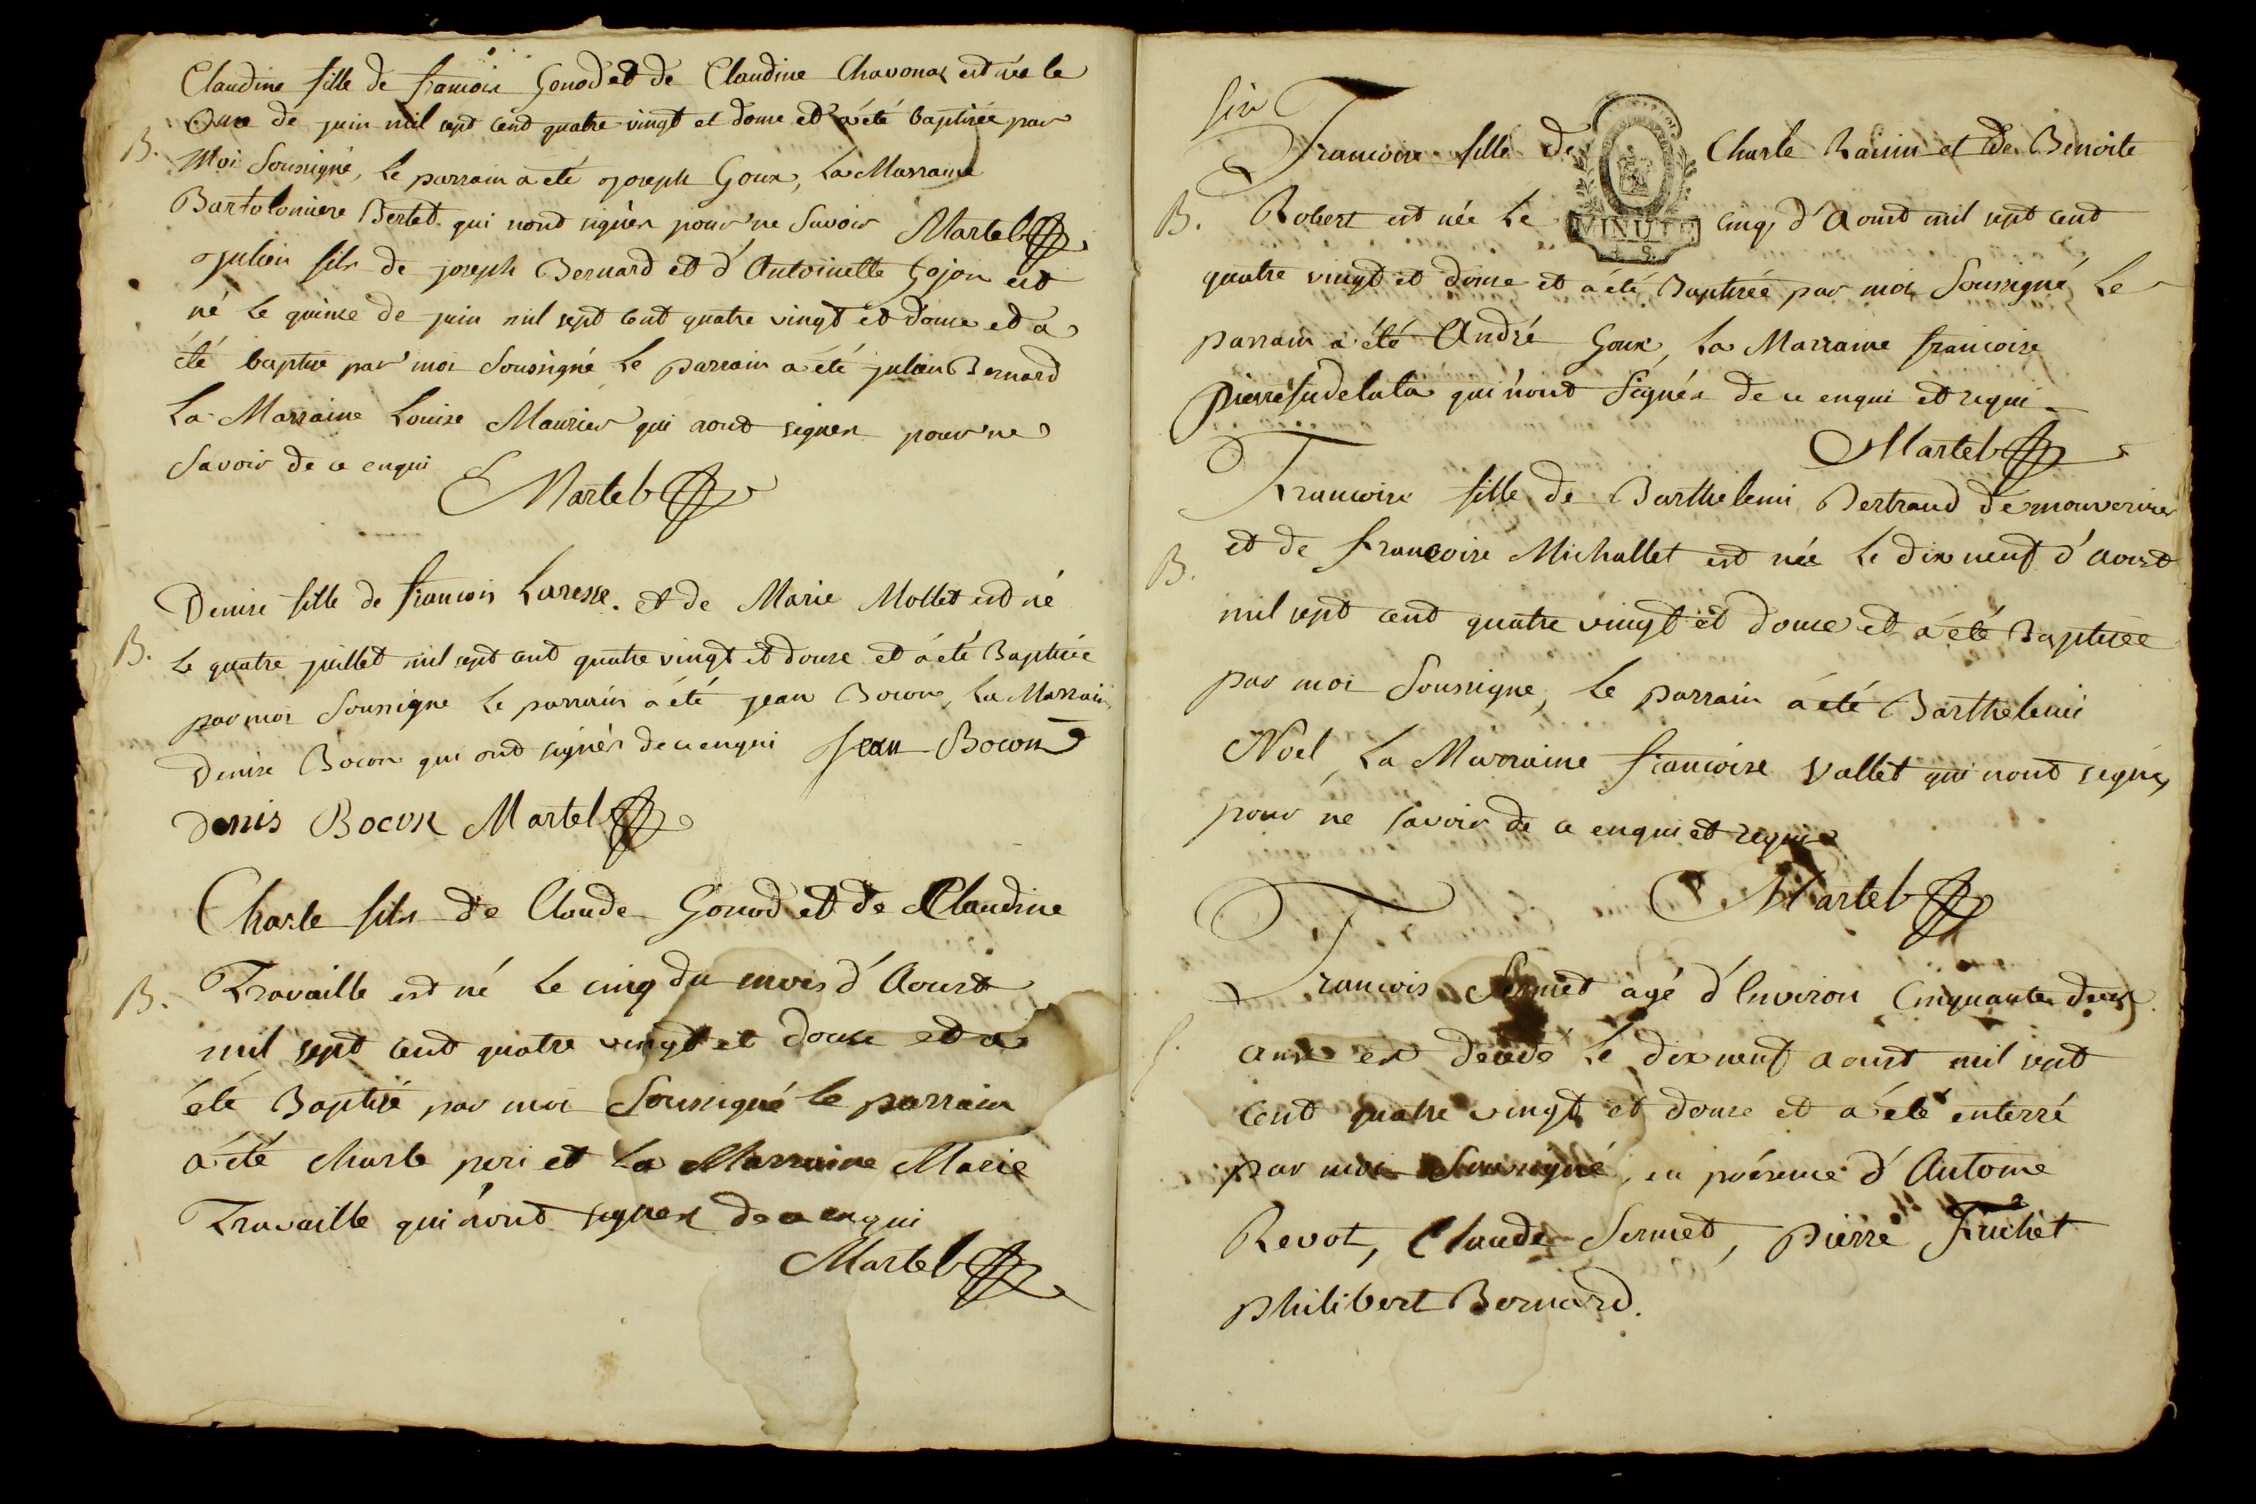 Claudine fille de francois Gonod et de Claudine Chavonas est née le
Onze de juin mil sept cend quatre vingt et douze et a été baptisée par
B.
Moi Soussigné, Le parrain a été joseph Goux, La Marraine
Bartolomiere Bertet qui nond signés pour ne Savoir Martel
julien fils de joseph Bernard et d'Antoinette Gojon est
né Le quinze de juin mil sept cent quatre vingt et douze et a
été baptisé par moi Soussigné Le parrain a été julien Bernard
La Marraine Louise Maurier qui nont signer pour ne
Savoir de ce enqui
Martel
Denise fille de francois Laresse. et de Marie Mollet est né
B.
Le quatre juillet mil sept cent quatre vingt et douze et a été Baptisée
par moi Soussigne Le parrain a été jean Bocon, La Marrain
Denise Bocon qui ont signés de ce enqui Jean Bocon
Denis Bocon Martel
Charle fils de Claude Gonod et de Claudine
B.
Travaille est né Le cinq du mois d'Aoust
mil sept cent quatre vingt et douze et a
été Baptisé par moi Soussigné le parrain
a été charle peri et La Marraine Marie
Travaille qui n'ont signer de ce enqui
Martel
six
Francoise fille de Charle Raisin et de Benoite
B.
Robert est née Le cinq d'Aoust mil sept cent
MINUTE
quatre vingt et douze et a été Baptisée par moi Soussigné Le
parrain a été André Goux, La Marraine francoise
pierre qui n'ont Signés de ce enqui et requi
Martel
Francoise fille de Barthelemi Bertrand de
et de francoise Michallet est née Le dix neuf d'Aoust
B.
mil sept cent quatre vingt et douze et a été Baptisée
par moi Soussigne, Le parrain a été Barthelemi
Noel, La Marraine francoise Vallet qui nont signés
pour ne savoir de ce enqui et requi
Martel
Francois Sermet agé d'Environ Cinquante deux
ans est décedé Le dix neuf aoust mil sept
cent quatre vingt et douze et a été enterré
par moi Soussigné, en présence d'Antoine
Revot, Claude Sermet, pierre Fuchet
philibert Bernard.